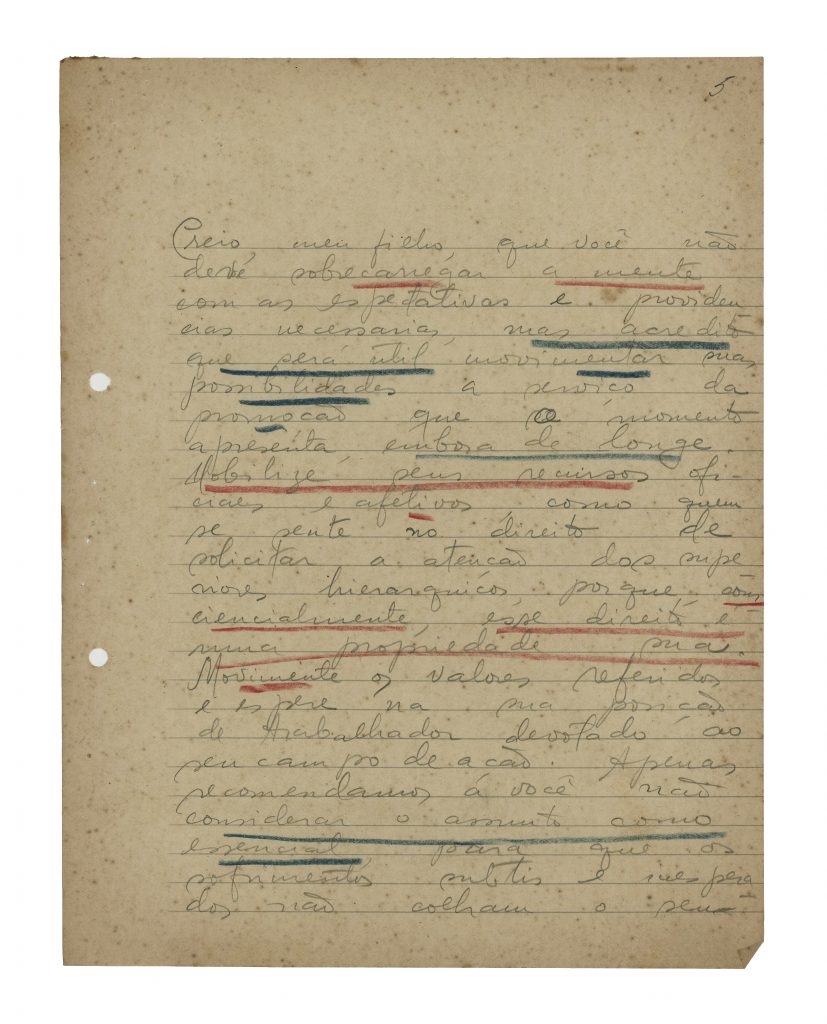 5
Creio, meu filho, que você não
deve sobrecarregar a mente
com as espetativas e providen
cias necessarias, mas acredito
que será util movimentar suas
possibilidades a serviço da
promoção que o momento
apresenta, embora de longe.
Mobilize seus recursos ofi-
ciaes e afetivos, como quem
se sente no direito de
solicitar a atenção dos supe
riores hierarquicos, porque, cons
ciencialmente, esse direito é
uma propriedade sua.
Movimente os valores referidos
e espere na sua posição
de trabalhador devotado ao
seu campo de ação. Apenas
recomendamos á você não
considerar o assunto como
essencial para que os
sofrimentos subtis e inespera
dos não colham o seu